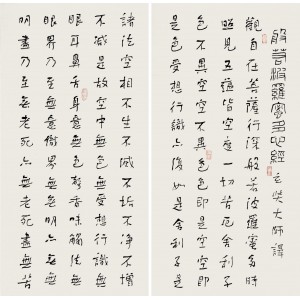 般若波羅蜜多心經 玄奘大師譯
觀自在菩薩行深般若波羅蜜多時
照見五蘊皆空度一切苦厄舍利子
色不異空空不異色色即是空空即
是色受想行識亦復如是舍利子是
諸法空相不生不滅不垢不淨不增
不減是故空中無色無受想行識無
眼耳鼻舌身意無色聲香味觸法無
眼界乃至無意識界無無明亦無無
明盡乃至無老死亦無老死盡無苦